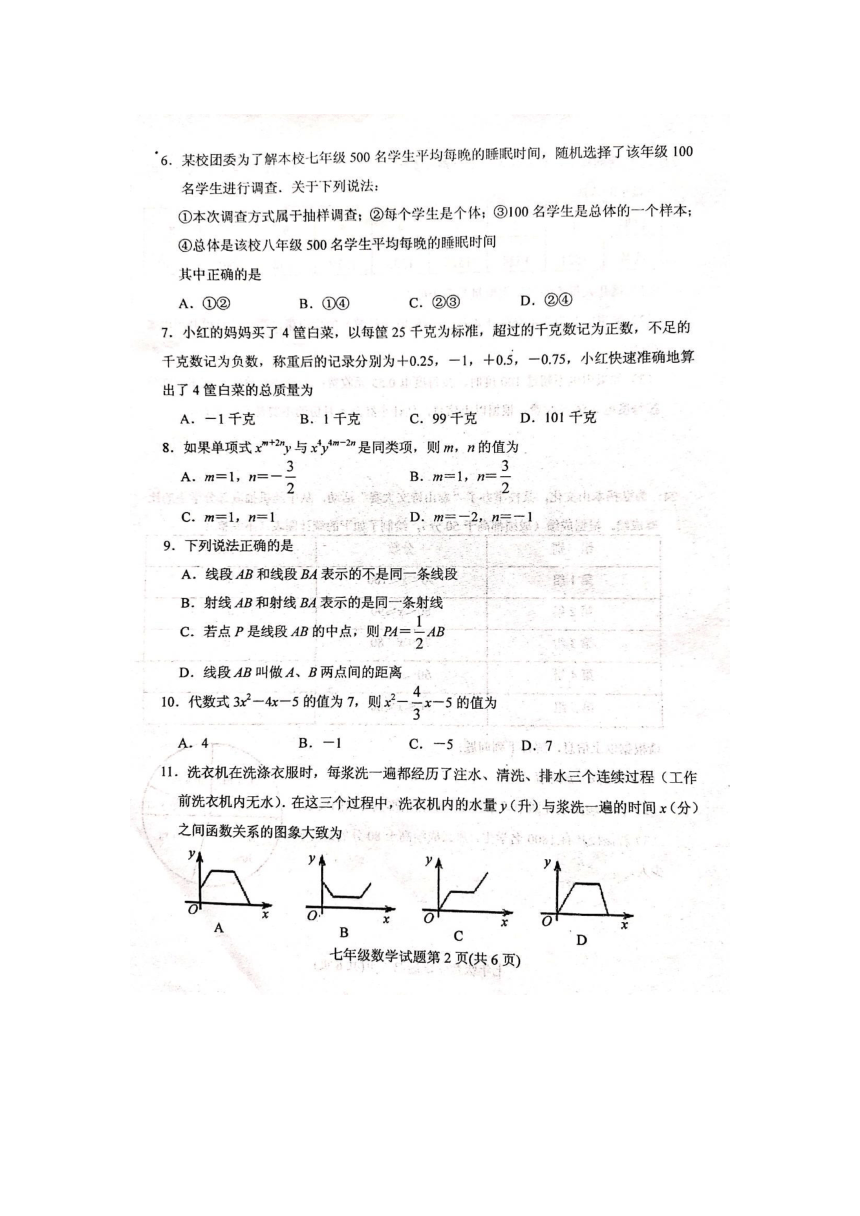 6．某校团委为了解本校七年级 500 名学生平均每晚的睡眠时间，随机选择了该年级 100
名学生进行调查．关于下列说法：
①本次调查方式属于抽样调查；②每个学生是个体；③100 名学生是总体的一个样本；
④总体是该校八年级 500 名学生平均每晚的睡眠时间
其中正确的是
A．①② B．①④ C．②③ D．②④
7．小红的妈妈买了 4 筐白菜，以每筐 25 千克为标准，超过的千克数记为正数，不足的
千克数记为负数，称重后的记录分别为＋0.25，－1，＋0.5，－0.75，小红快速准确地算
出了 4 筐白菜的总质量为
A．－1 千克 B．1 千克 C．99 千克 D．101 千克
8．如果单项式 x^{m+2n}y 与 x^4y^{4m-2n} 是同类项，则 m，n 的值为
A．m＝1，n＝－3/2 B．m＝1，n＝3/2
C．m＝1，n＝1 D．m＝－2，n＝－1
9．下列说法正确的是
A．线段 AB 和线段 BA 表示的不是同一条线段
B．射线 AB 和射线 BA 表示的是同一条射线
C．若点 P 是线段 AB 的中点，则 PA＝1/2AB
D．线段 AB 叫做 A、B 两点间的距离
10．代数式 3x²－4x－5 的值为 7，则 x²－4/3x－5 的值为
A．4 B．－1 C．－5 D．7
11．洗衣机在洗涤衣服时，每浆洗一遍都经历了注水、清洗、排水三个连续过程（工作
前洗衣机内无水）．在这三个过程中，洗衣机内的水量 y（升）与浆洗一遍的时间 x（分）
之间函数关系的图象大致为
y y y y
O x O x O x O x
A B C D
七年级数学试题第 2 页(共 6 页)